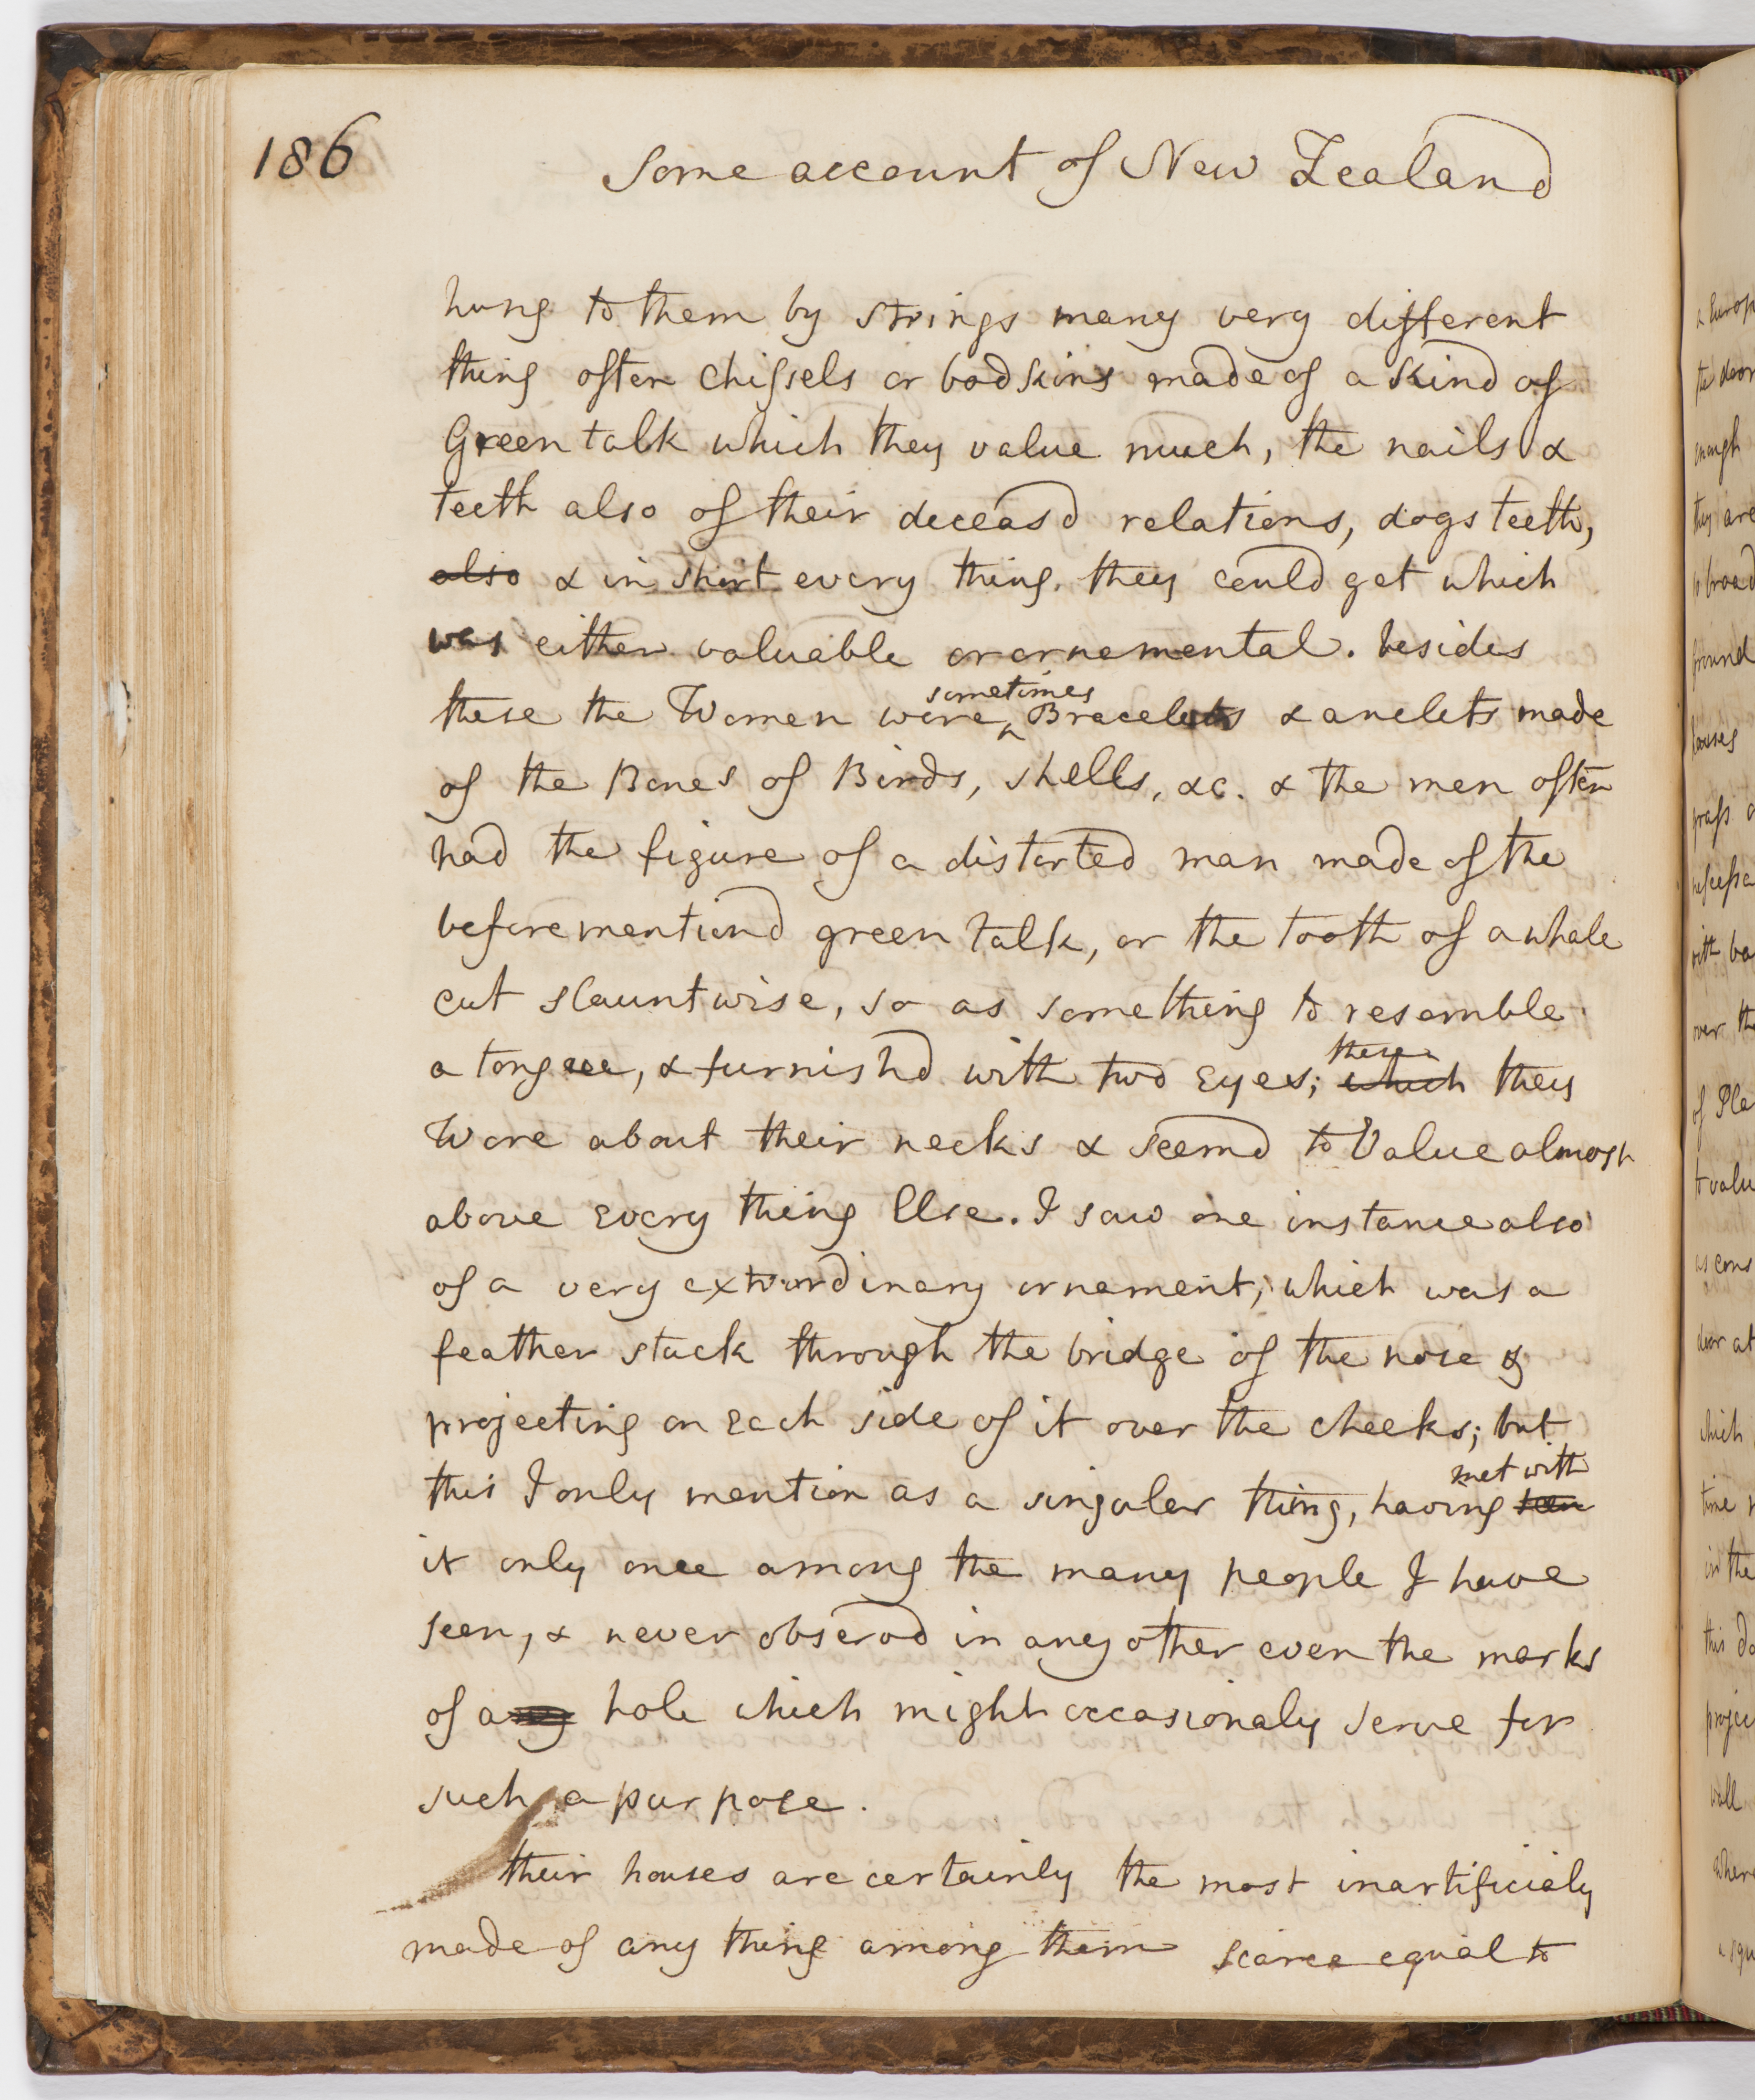 186
Some account of New Zealand
hung to them by strings many very different
thing often chissels or bodkins made of a kind of
Green talk which they value much, the nails &
teeth also of their deceasd relations, dogs teeth,
also & in short every thing they could get which
was either valuable or ornemental. besides
these the Women wore sometimes Bracelets & anclets made
of the Bones of Birds, shells, &c. & the men often
had the figure of a distorted man made of the
beforementiond green talk, or the tooth of a whale
cut slauntwise, so as something to resemble
a tongue, & furnishd with two Eyes; which these they
Wore about their necks & seemd to Value almost
above Every thing Else. I saw one instance also
of a very extraordinary ornament, which was a
feather stuck through the bridge of the nose &
projecting on Each side of it over the cheeks; but
this I only mention as a singular thing, having seen met with
it only once among the many people I have
seen, & never observd in any other even the marks
of any hole which might occasionaly serve for
such a purpose.
their houses are certainly the most inartificialy
made of any thing among them scarce equal to